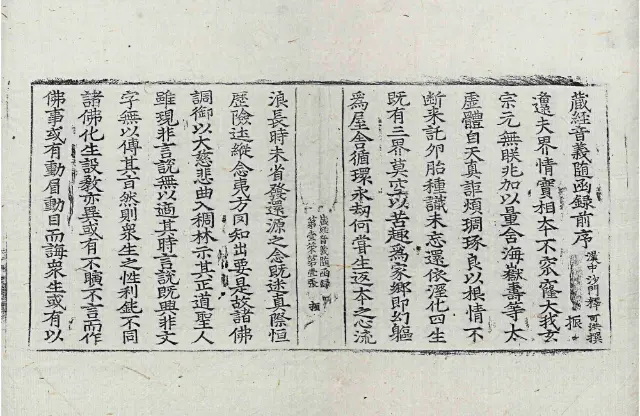 藏經音義隨函錄前序 漢中沙門釋可洪撰 振
夐夫界情實相本不䆳大我玄
宗元無朕兆加以量含海嶽壽等太
虛體自天真詎煩琱琢良以根情不
断来託夘胎種識未忘還依溼化四生
既有三界莫空以苦趣爲家郷即幻軀
爲屋舍循環永劫何甞生返本之心流
藏經音義隨函録
第壹 第壹張 振
浪長時未省發還源之念既迷真際恒
歷險途縱念夷方冈知出要是故諸佛
調御以大慈悲曲入稠林示其正道聖人
雖現非言說無以適其時言說既興非文
字無以傳其旨然則衆生之性利鈍不同
諸佛化生設敎亦異或有不嚬不言而作
佛事或有動眉動目而誨衆生或有以